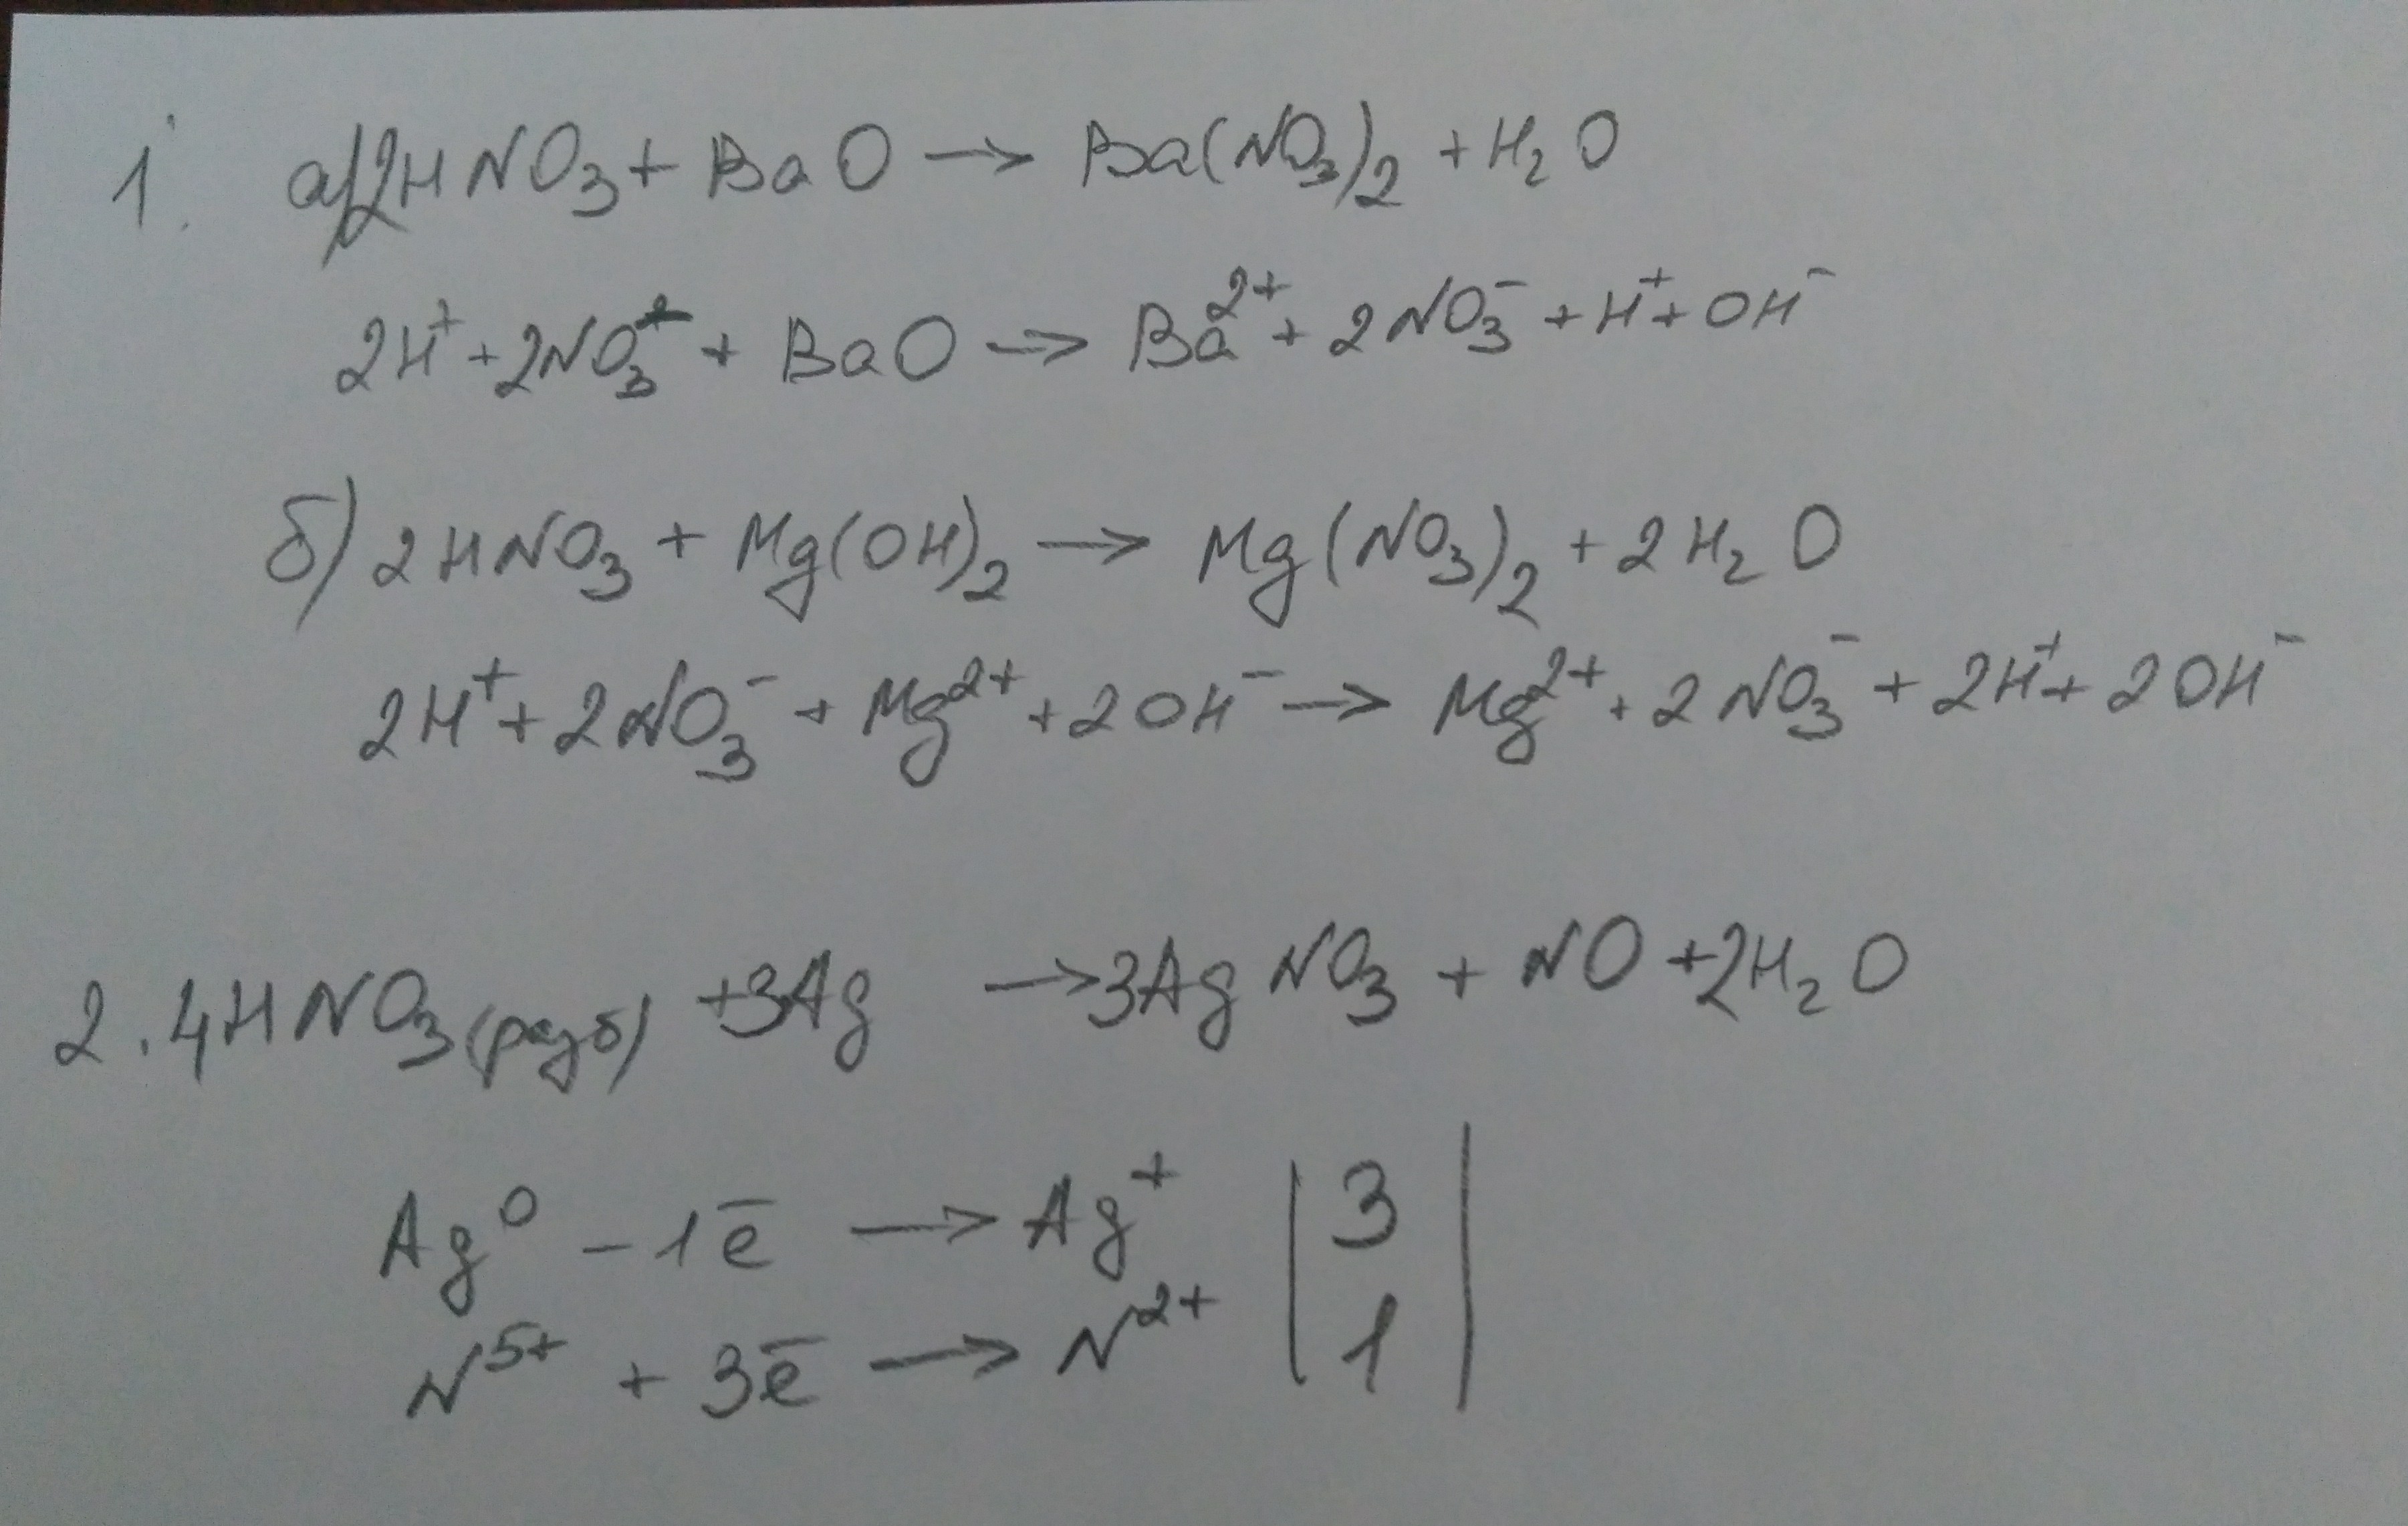 1. а) 2HNO₃ + BaO → Ba(NO₃)₂ + H₂O
2H⁺ + 2NO₃⁻ + BaO → Ba²⁺ + 2NO₃⁻ + H⁺ + OH⁻
б) 2HNO₃ + Mg(OH)₂ → Mg(NO₃)₂ + 2H₂O
2H⁺ + 2NO₃⁻ + Mg²⁺ + 2OH⁻ → Mg²⁺ + 2NO₃⁻ + 2H⁺ + 2OH⁻
2. 4HNO₃(разб) + 3Ag → 3AgNO₃ + NO + 2H₂O
Ag⁰ − 1ē → Ag⁺ | 3 |
N⁵⁺ + 3ē → N²⁺ | 1 |